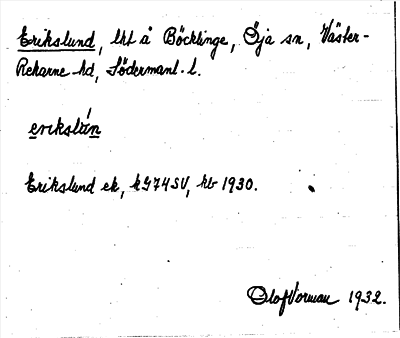 Erikslund, lht å Böcklinge, Öja sn, Väster-
Rekarne hd, Södermanl. l.
erikslún
Erikslund ek, kG74SV, hb 1930.
Olof Vorman 1932.